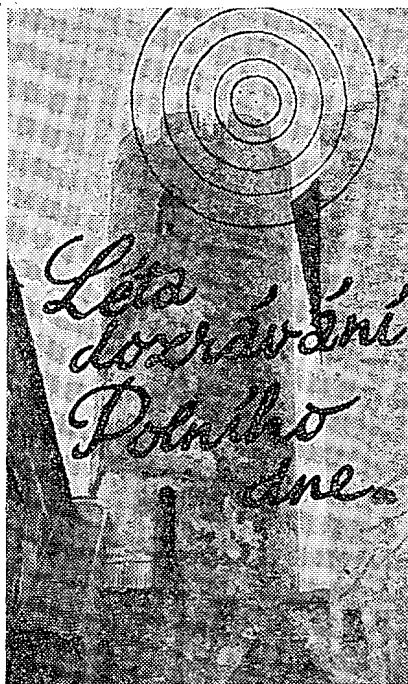 Léta
dozrávání
Polního
dne